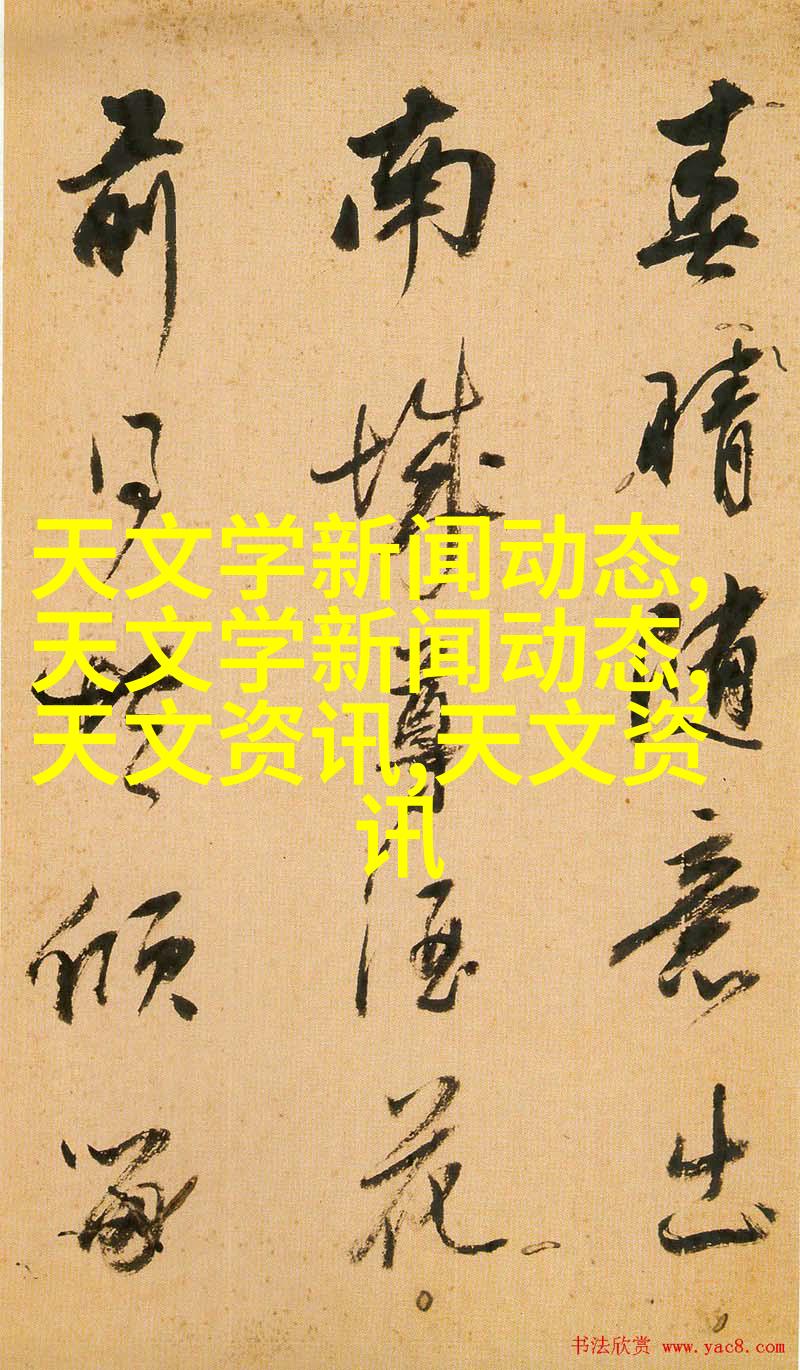 春晴隨意出
南城尊酒花
前傾
天文学新闻动态,
天文学新闻动态,
天文资讯,天文资
讯
书法欣赏 www.yac8.com